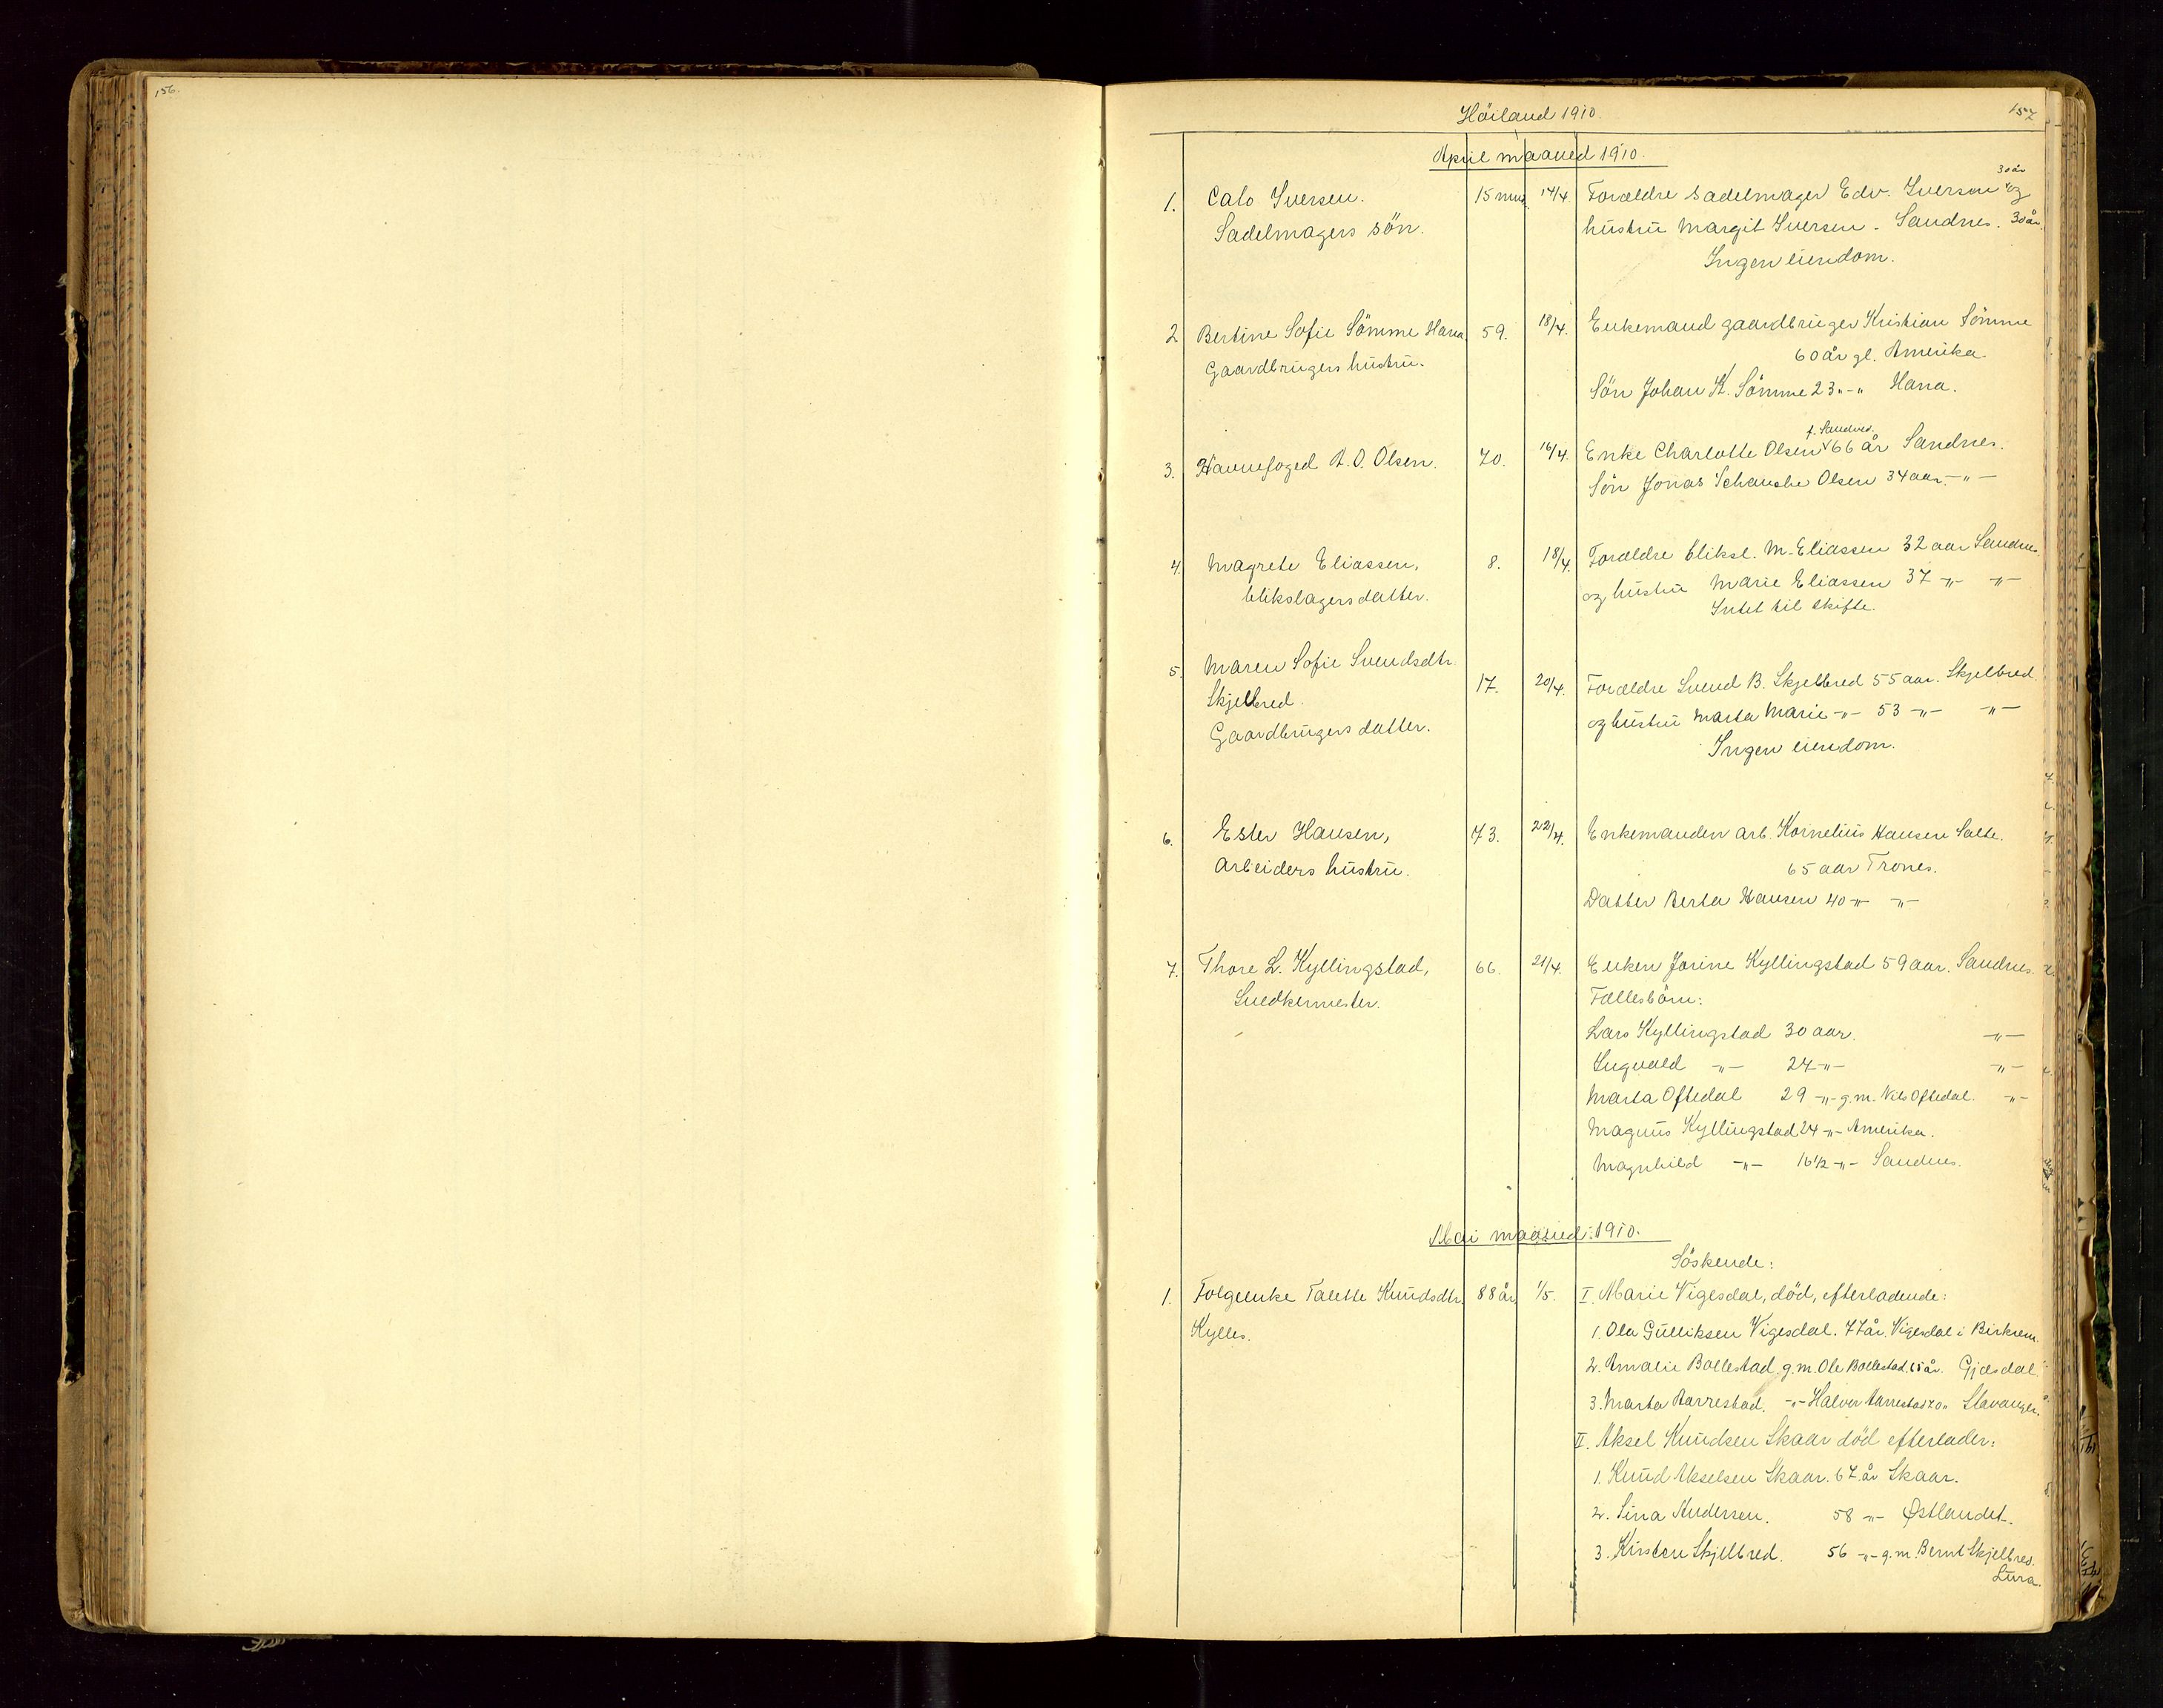 156.
Höiland 1910.
157
April maaned 1910.
1. Calo Iversen. 15 mnd. 14/4. Forældre Sadelmager Edv. Iversen 30 år og
Sadelmagers sön. hustru Margit Iversen. Sandnes. 30 år.
Ingen eiendom.
2 Bertine Sofie Sömme Hana. 59. 18/4. Enkemand gaardbruger Kristian Sömme
Gaardbrugers hustru. 60 år gl. Amerika.
Sön Johan K. Sömme 23 „-„ Hana.
f. Sandnes.
3. Havnefoged A. O. Olsen. 70. 16/4. Enke Charlotte Olsen 66 år Sandnes.
Sön Jonas Schanche Olsen 34 aar. -„-
4. Magrete Eliassen, 8. 18/4. Forældre bliksl. M. Eliassen 32 aar Sandnes.
blikslagers datter. og hustru Marie Eliassen 37 -„- -„-
Intet til skifte.
5. Maren Sofie Svendsdtr.
Skjelbred. 17. 20/4. Forældre Svend B. Skjelbred 55 aar. Skjelbred.
Gaardbrugers datter. og hustru Marta Marie -„- 53 -„- -„-
Ingen eiendom.
6. Ester Hansen, 73. 22/4. Enkemanden arb. Kornelius Hansen Salte.
Arbeiders hustru. 65 aar Trones.
Datter Berta Hansen 40 -„- -„-
7. Thore L. Kyllingstad, 66. 21/4. Enken Jorine Kyllingstad 59 aar. Sandnes.
Snedkermester. Fællesbörn:
Lars Kyllingstad 30 aar. -„-
Ingvald -„- 27 -„- -„-
Marta Oftedal 29 -„- g.m. Nils Oftedal. -„-
Magnus Kyllingstad 24 -„- Amerika.
Magnhild -„- 16 1/2 -„- Sandnes.
Mai maaned 1910.
Söskende:
1. Folgeenke Talette Knudsdtr. 88 år 1/5. I. Marie Vigesdal, död, efterladende:
Kylles. 1. Ola Gulliksen Vigesdal. 77 år. Vigesdal i Birkrem.
2. Amalie Bollestad. g.m. Ole Bollestad. 65 år. Gjæsdal.
3. Marta Aarrestad. -„- Halvor Aarrestad 70 „ Stavanger.
II. Aksel Knudsen Skaar död efterlader:
1. Knud Akselsen Skaar. 67 år Skaar.
2. Sina Andersen. 58 -„- Østlandet.
3. Kirsten Skjelbred. 56 -„- g.m. Bernt Skjelbred.
Lura.